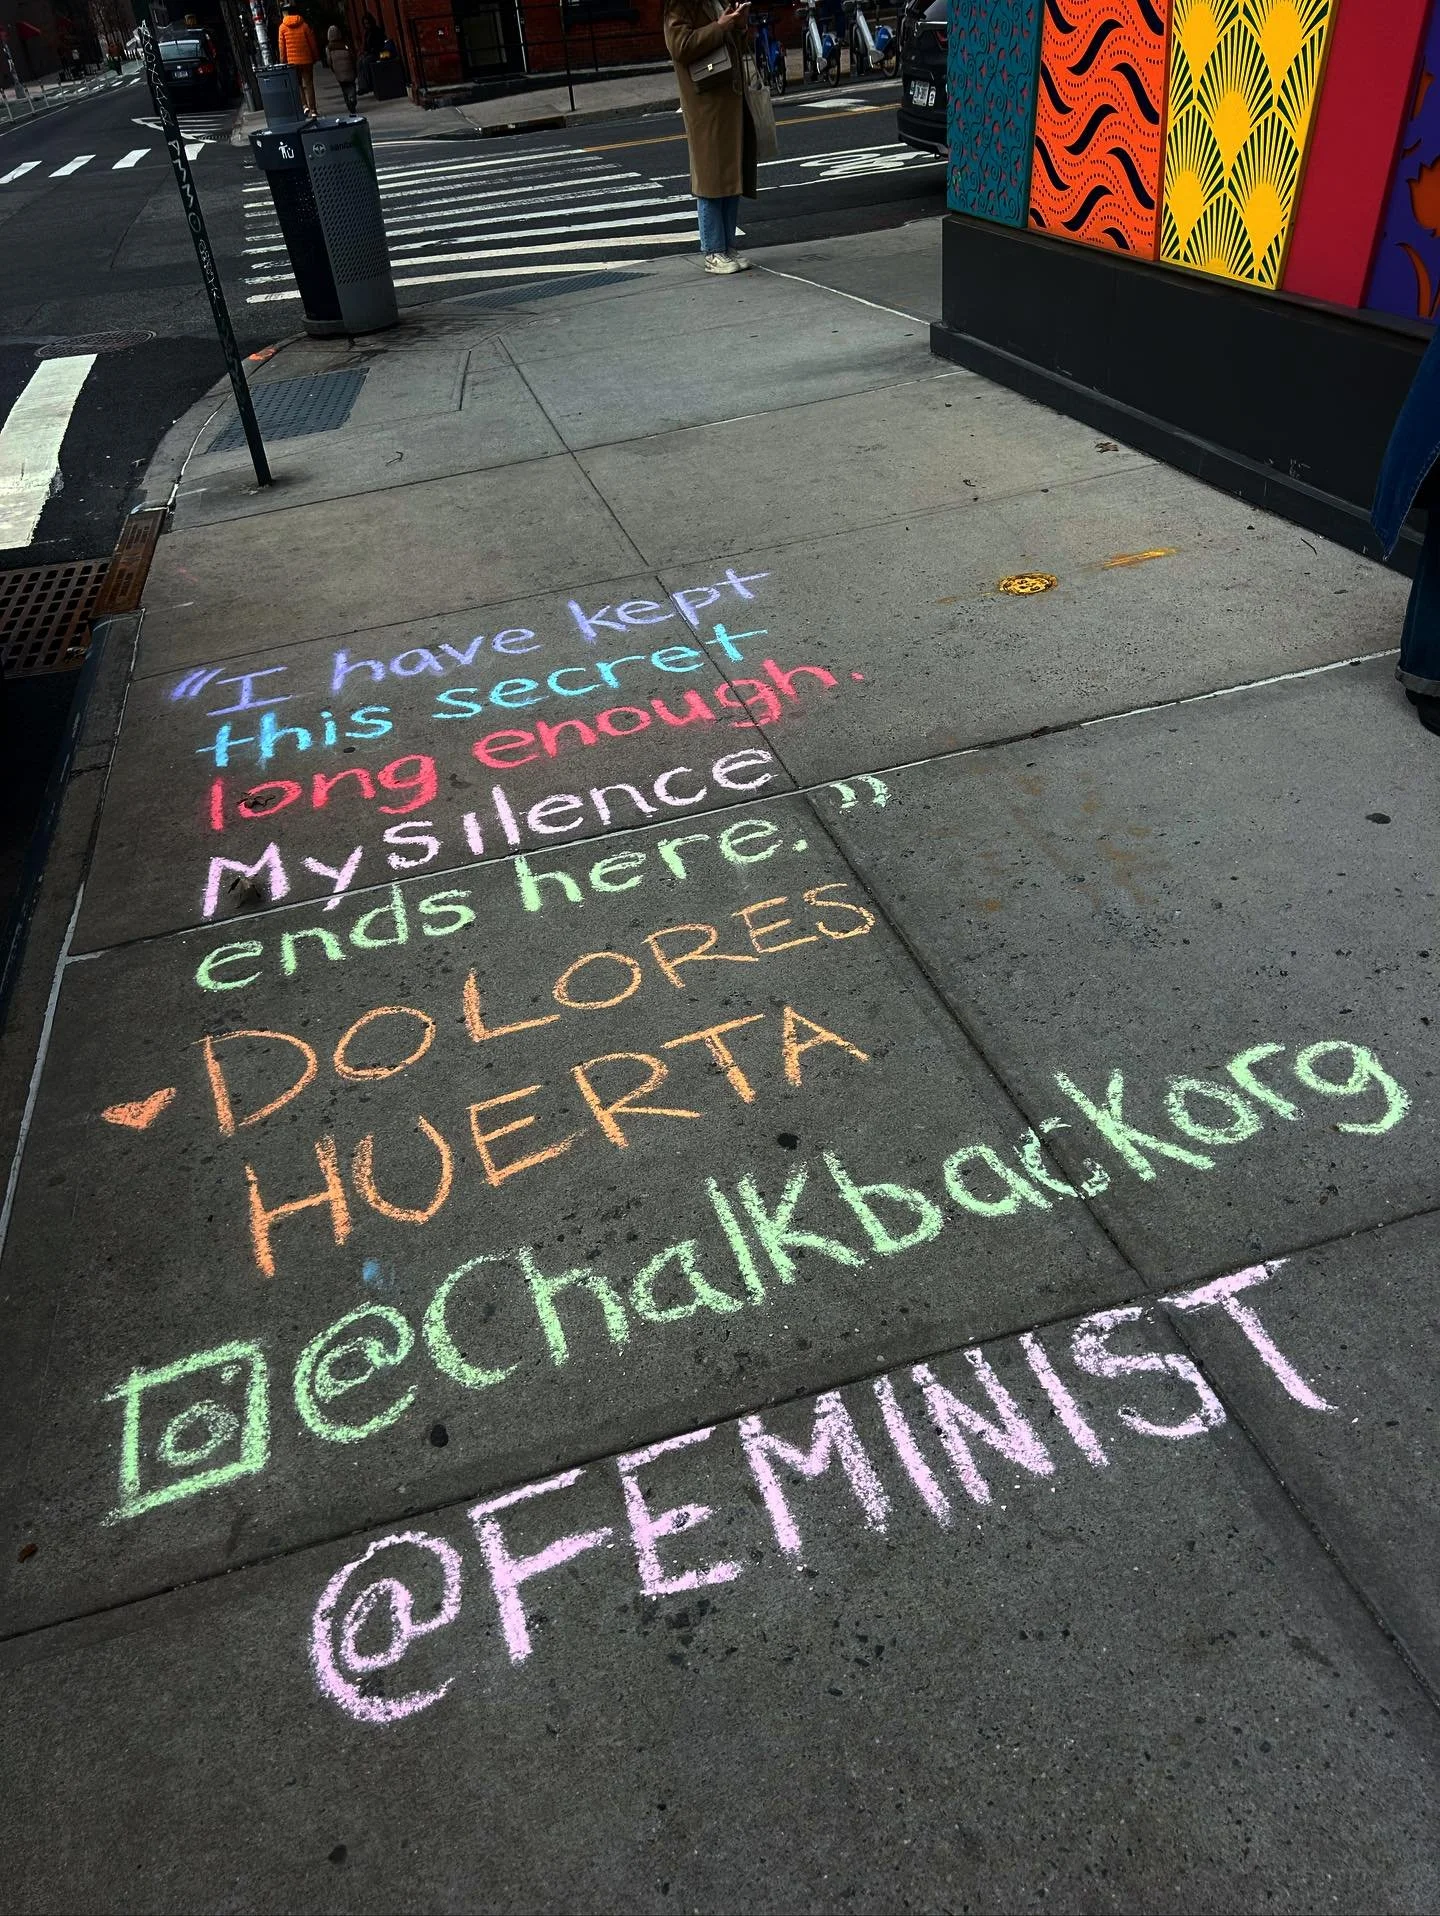 “I have kept
this secret
long enough.
My Silence
ends here.”
DOLORES
HUERTA
@Chalkbackorg
@FEMINIST